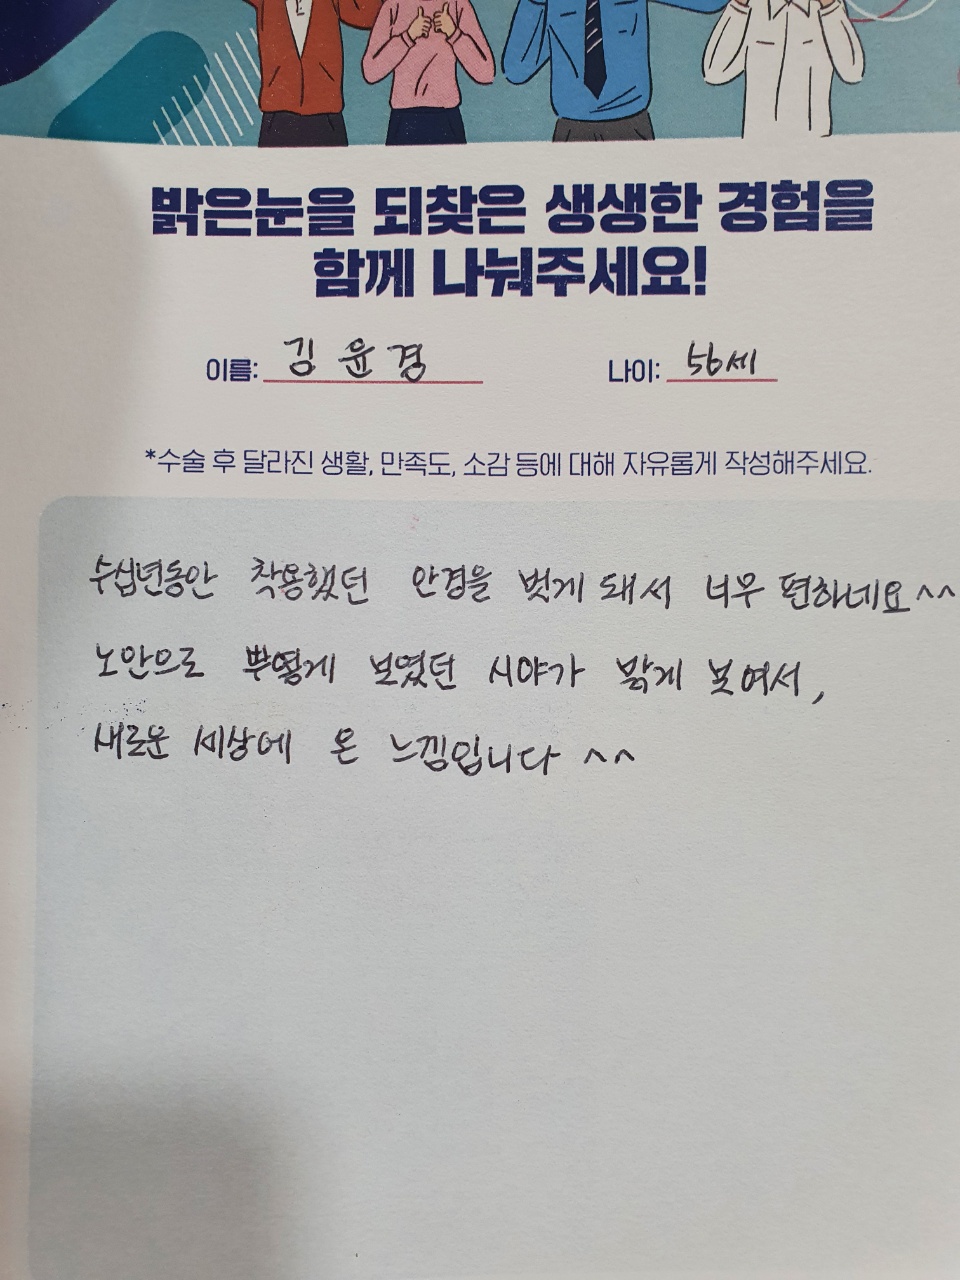 밝은눈을 되찾은 생생한 경험을
함께 나눠주세요!
이름: 김윤경 나이: 56세
*수술 후 달라진 생활, 만족도, 소감 등에 대해 자유롭게 작성해주세요.
수십년동안 착용했던 안경을 벗게 돼서 너무 편하네요^^
노안으로 뿌옇게 보였던 시야가 밝게 보여서,
새로운 세상에 온 느낌입니다 ^^